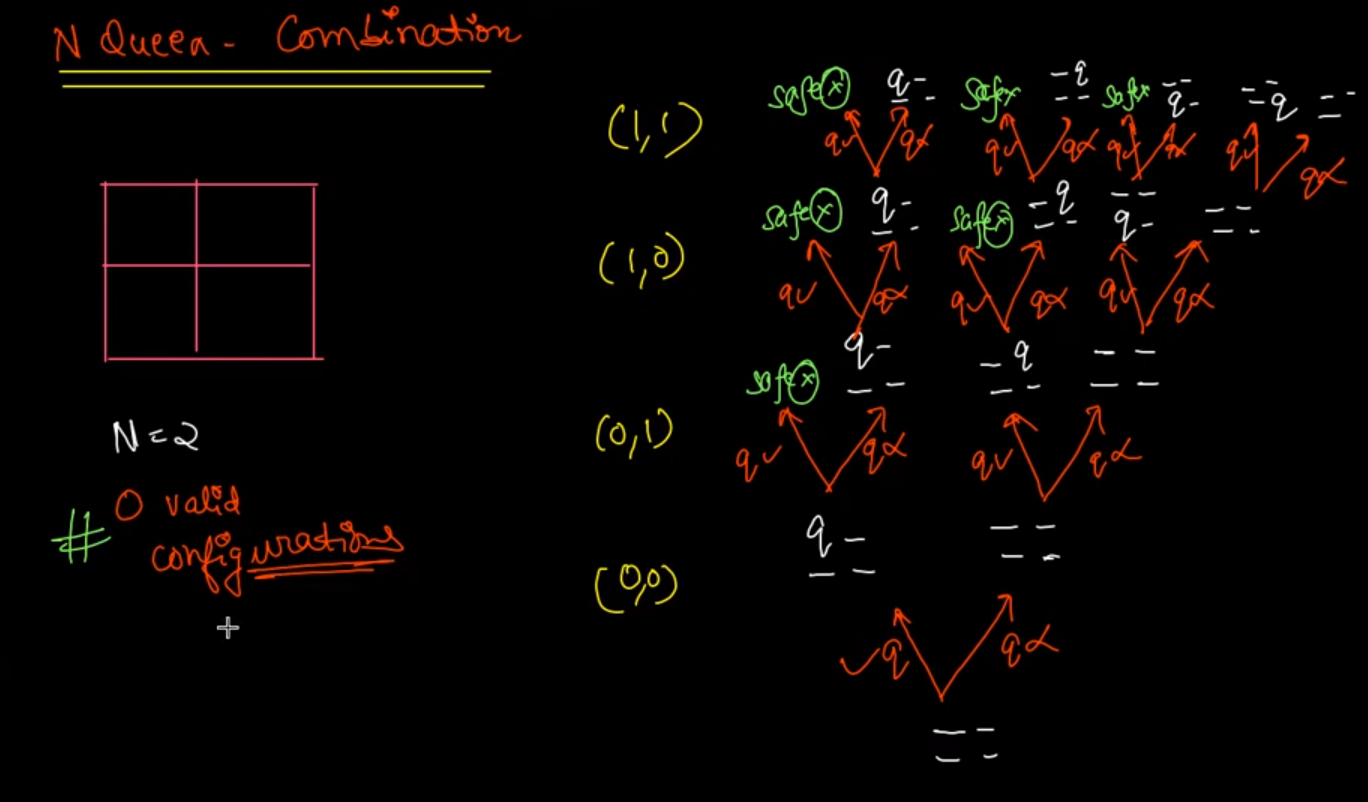 N Queen - Combination
N = 2
# 0 valid
configurations
(1,1)
safe x q - safe x - q safe x - - - - - -
- - - - q - - q - -
q✓ qx q✓ qx q✓ qx q✓ qx
(1,0)
safe x q - safe x - q - - - -
- - - - q - - -
q✓ qx q✓ qx q✓ qx
(0,1)
safe x q - - q - -
- - - - - -
q✓ qx q✓ qx
(0,0)
q - - -
- - - -
✓q qx
- -
- -